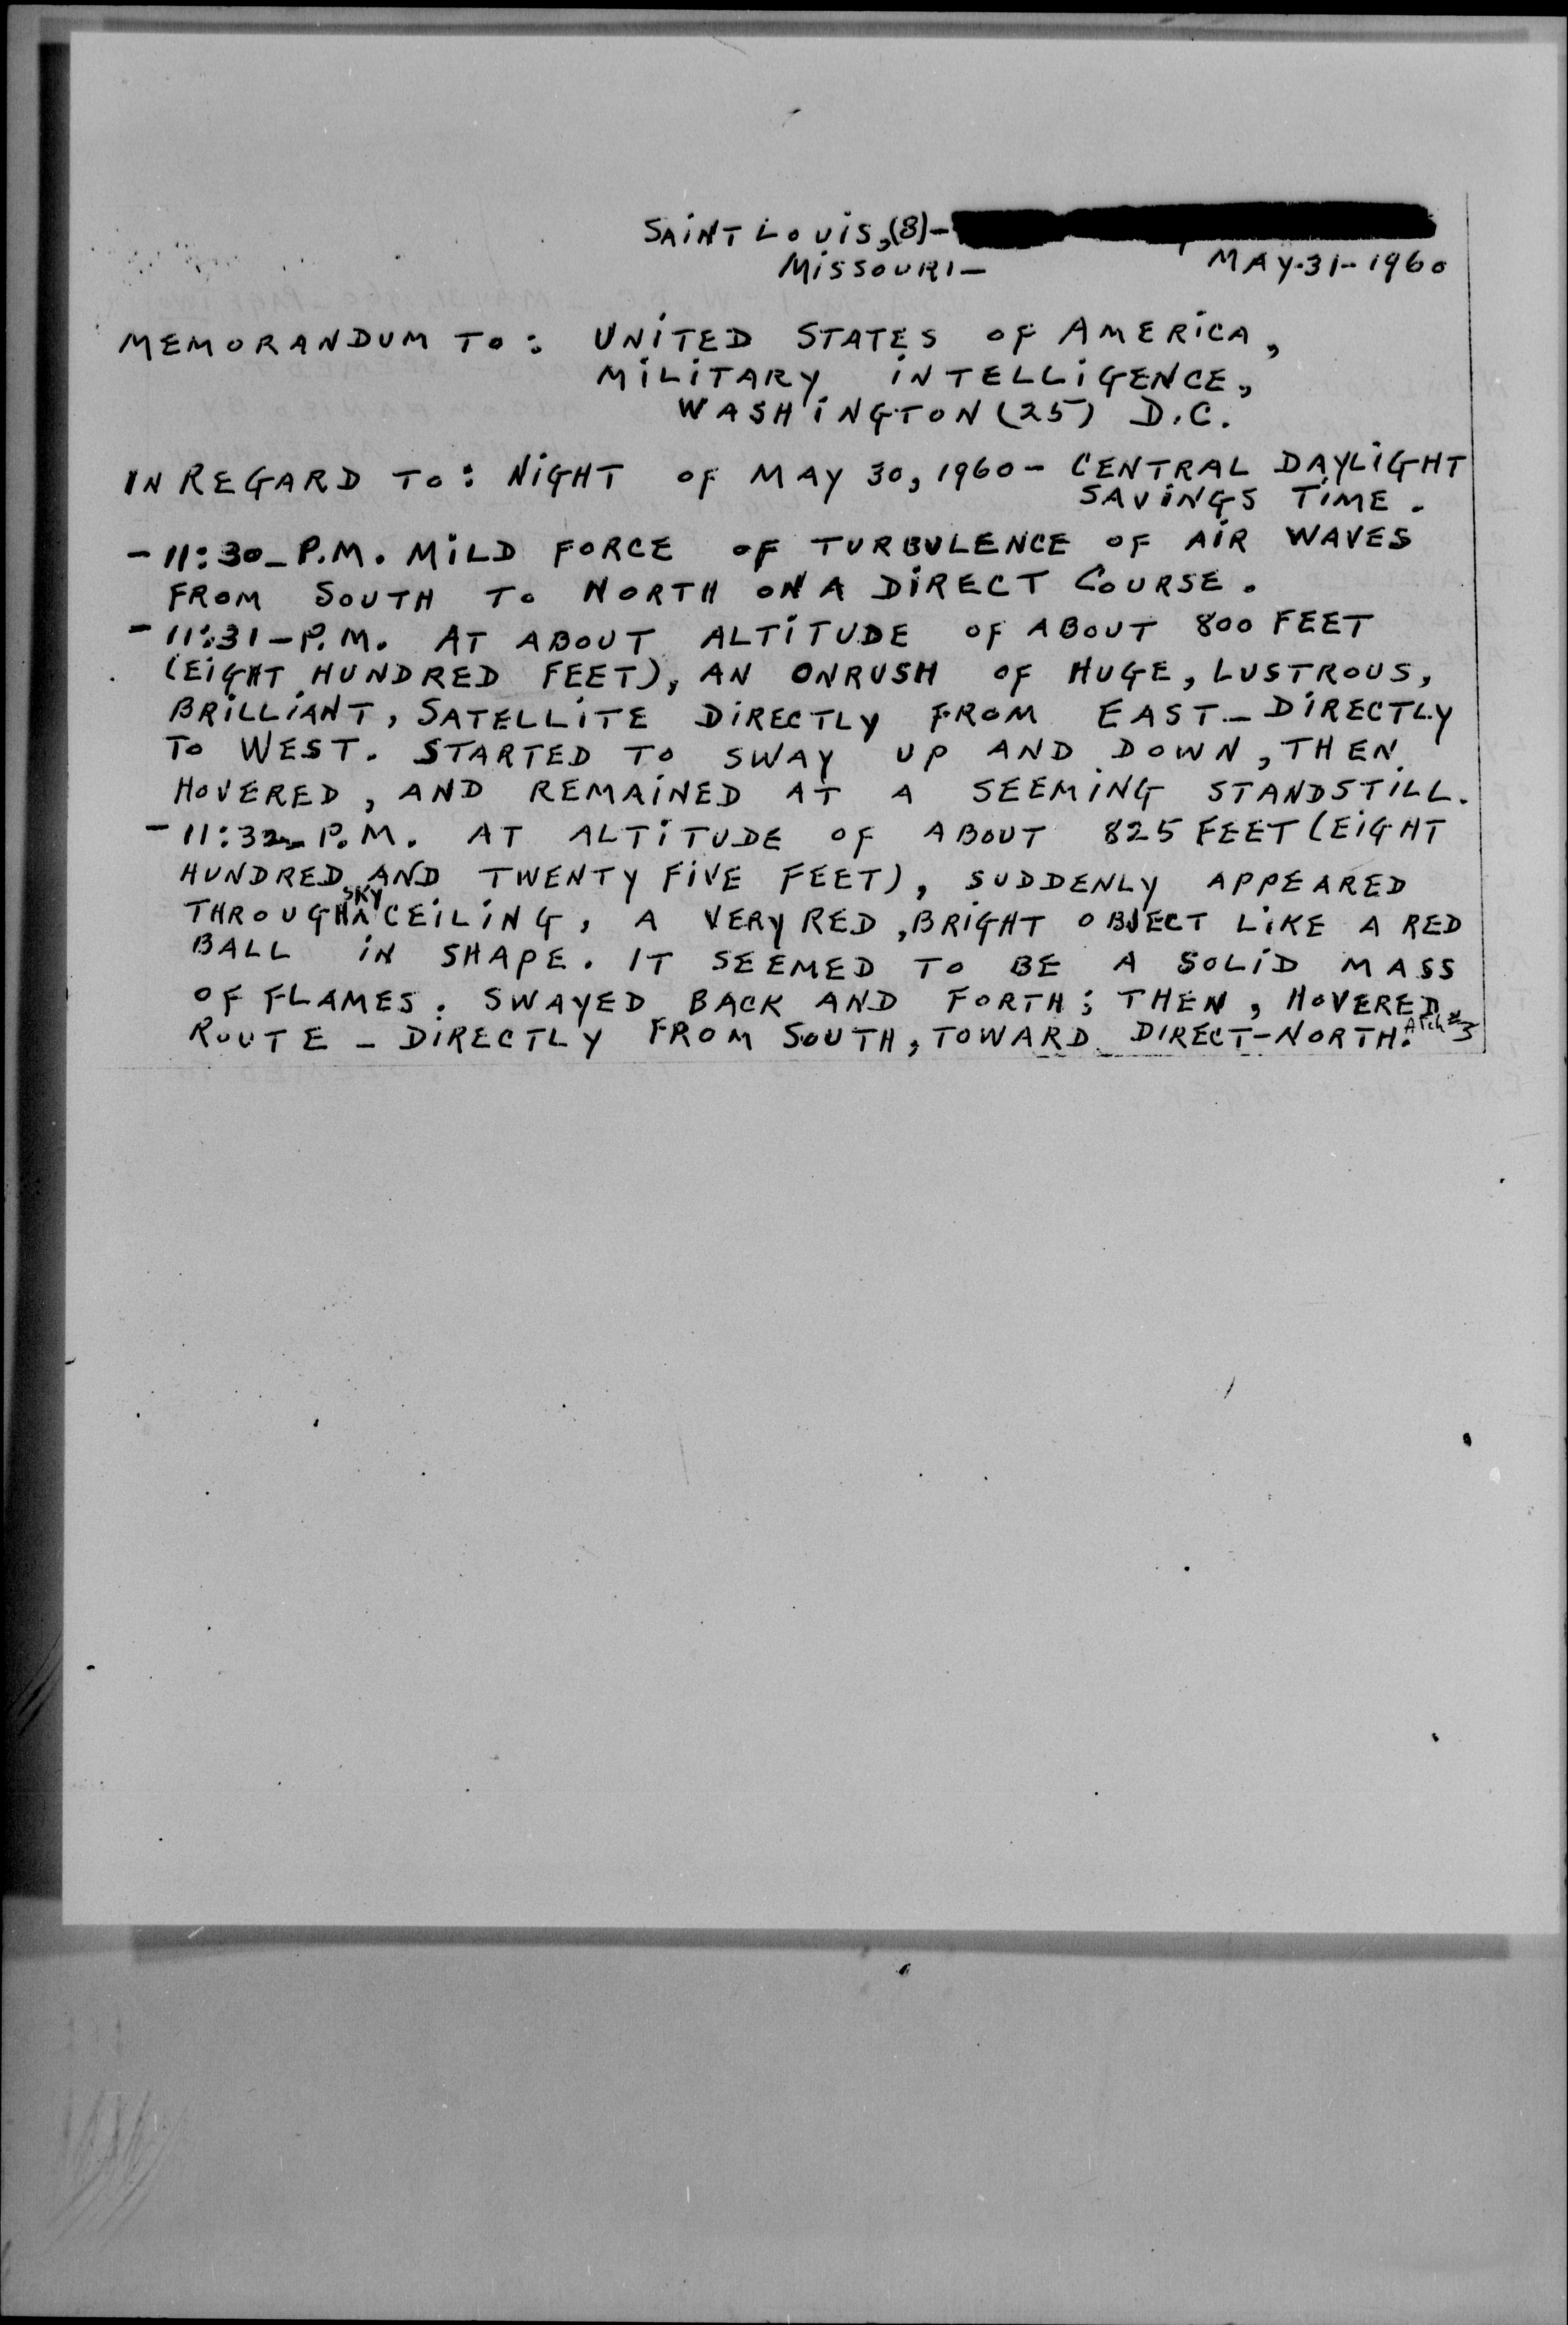 SAINT LOUIS,(8)-
MISSOURI-
MAY-31-1960
MEMORANDUM TO: UNITED STATES OF AMERICA,
MILITARY INTELLIGENCE,
WASHINGTON (25) D.C.
IN REGARD TO: NIGHT OF MAY 30, 1960 - CENTRAL DAYLIGHT
SAVINGS TIME.
- 11:30_P.M. MILD FORCE OF TURBULENCE OF AIR WAVES
FROM SOUTH TO NORTH ON A DIRECT COURSE.
- 11:31-P.M. AT ABOUT ALTITUDE OF ABOUT 800 FEET
(EIGHT HUNDRED FEET), AN ONRUSH OF HUGE, LUSTROUS,
BRILLIANT, SATELLITE DIRECTLY FROM EAST - DIRECTLY
TO WEST. STARTED TO SWAY UP AND DOWN, THEN
HOVERED, AND REMAINED AT A SEEMING STANDSTILL.
- 11:32_P.M. AT ALTITUDE OF ABOUT 825 FEET (EIGHT
HUNDRED AND TWENTY FIVE FEET), SUDDENLY APPEARED
THROUGH SKY CEILING, A VERY RED, BRIGHT OBJECT LIKE A RED
BALL IN SHAPE. IT SEEMED TO BE A SOLID MASS
OF FLAMES. SWAYED BACK AND FORTH; THEN, HOVERED
ROUTE - DIRECTLY FROM SOUTH, TOWARD DIRECT-NORTH.
Atch #3